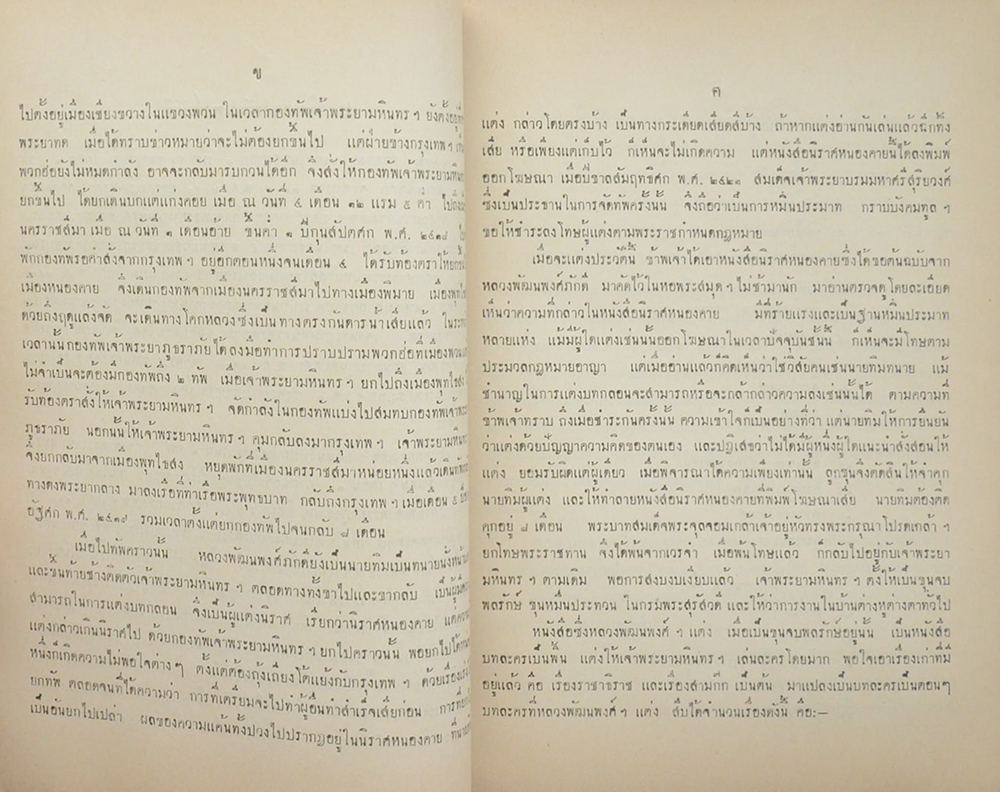 ข
ไปตั้งอยู่เมืองเชียงขวางในแขวงพวน ในเวลากองทัพเจ้าพระยามหินทร ฯ ยังตั้งอยู่
พระยาทด เมื่อได้ทราบข่าวหมายว่าจะไม่ต้องยกขึ้นไป แต่ฝ่ายข้างกรุงเทพ ฯ
พวกฮ่อยังไม่หมดกำลัง อาจจะกลับมารบกวนได้อีก จึงสั่งให้กองทัพเจ้าพระยามหิน
ยกขึ้นไป ได้ยกเดินบกแต่แก่งคอย เมื่อ ณ วันที่ ๔ เดือน ๑๒ แรม ๕ ค่ำ ไปถึง
นครราชสีมา เมื่อ ณ วันที่ ๑ เดือนอ้าย ขึ้นค่ำ ๑ ปีกุนสัปตศก พ.ศ. ๒๔๑๘
พักกองทัพรอคำสั่งจากกรุงเทพ ฯ อยู่อีกตอนหนึ่งจนเดือน ๔ ได้รับท้องตราให้ยก
เมืองหนองคาย จึงเดินกองทัพจากเมืองนครราชสีมาไปทางเมืองพิมาย เมืองพุทไธสง
ด้วยถึงฤดูแล้งจัด จะเดินทางโคกหลวงซึ่งเป็นทางตรงกันดารน้ำเสียแล้ว ในระหว่าง
เวลานั้นกองทัพเจ้าพระยาภูธราภัยได้ลงมือทำการปราบปรามพวกฮ่อที่เมืองพวน
ไม่จำเป็นจะต้องมีกองทัพถึง ๒ ทัพ เมื่อเจ้าพระยามหินทร ฯ ยกไปถึงเมืองพุทไธสง
รับท้องตราสั่งให้เจ้าพระยามหินทร ฯ จัดกำลังในกองทัพแบ่งไปสมทบกองทัพเจ้าพระยา
ภูธราภัย นอกนั้นให้เจ้าพระยามหินทร ฯ คุมกลับลงมากรุงเทพ ฯ เจ้าพระยามหินทร
จึงยกกลับมาจากเมืองพุทไธสง หยุดพักที่เมืองนครราชสีมาหน่อยหนึ่งแล้วเดินทัพ
ทางดงพระยากลาง มาลงเรือที่ท่าเรือพระพุทธบาท กลับถึงกรุงเทพ ฯ เมื่อเดือน ๕
อัฐศก พ.ศ. ๒๔๑๙ รวมเวลาตั้งแต่ยกกองทัพไปจนกลับ ๗ เดือน
เมื่อไปทัพคราวนั้น หลวงพัฒนพงศ์ภักดียังเป็นนายทิมเป็นทนายนั่งหน้า
และขึ้นท้ายช้างติดตัวเจ้าพระยามหินทร ฯ ตลอดทางทั้งขาไปและขากลับ เป็นผู้มี
สามารถในการแต่งบทกลอน จึงเป็นผู้แต่งนิราศ เรียกว่านิราศหนองคาย แต่
แต่งกล่าวเกินนิราศไป ด้วยกองทัพเจ้าพระยามหินทร ฯ ยกไปคราวนั้น พอยกไปได้
หนึ่งก็เกิดความไม่พอใจต่างๆ ตั้งแต่ต้องถุ้งเถียงโต้แย้งกับกรุงเทพ ฯ ด้วยเรื่อง
ยกทัพ ตลอดจนที่ได้ความว่า การที่เตรียมจะไปทำผู้อื่นทำสำเร็จเสียก่อน การที่
เป็นอันยกไปเปล่า ผลของความแค้นทั้งปวงไปปรากฏอยู่ในนิราศหนองคาย ที่นาย
ค
แต่ง กล่าวโดยตรงบ้าง เป็นทางกระเดียดเสียดสีบ้าง ถ้าหากแต่งอ่านกันเล่นแล้วฉีกทิ้ง
เสีย หรือเพียงแต่เก็บไว้ ก็เห็นจะไม่เกิดความ แต่หนังสือนิราศหนองคายนี้ได้ลงพิมพ์
ออกโฆษณา เมื่อปีขาลสัมฤทธิศก พ.ศ. ๒๔๒๑ สมเด็จเจ้าพระยาบรมมหาศรีสุริยวงศ์
ซึ่งเป็นประธานในการจัดทัพครั้งนั้น จึงถือว่าเป็นการหมิ่นประมาท กราบบังคมทูล ฯ
ขอให้ชำระลงโทษผู้แต่งตามพระราชกำหนดกฎหมาย
เมื่อจะแต่งประวัตินี้ ข้าพเจ้าได้เอาหนังสือนิราศหนองคายซึ่งได้ขอต้นฉบับจาก
หลวงพัฒนพงศ์ภักดี มาคัดไว้ในหอพระสมุด ฯ ไม่ช้ามานัก มาอ่านตรวจดูโดยละเอียด
เห็นว่าความที่กล่าวในหนังสือนิราศหนองคาย มีที่ร้ายแรงและเป็นฐานหมิ่นประมาท
หลายแห่ง แม้มีผู้ใดแต่งเช่นนั้นออกโฆษณาในเวลาปัจจุบันนี้ ก็เห็นจะมีโทษตาม
ประมวลกฎหมายอาญา แต่เมื่ออ่านแล้วก็คิดเห็นว่าใช่วิสัยคนเช่นนายทิมทนาย แม้
ชำนาญในการแต่งบทกลอนจะสามารถหรือจะกล้ากล่าวความลงเช่นนั้นได้ ตามความที่
ข้าพเจ้าทราบ ถึงเมื่อชำระกันครั้งนั้น ความเข้าใจก็เป็นอย่างที่ว่า แต่นายทิมให้การยืนยัน
ว่าแต่งด้วยปัญญาความคิดของตนเอง และปฏิเสธว่าไม่ได้มีผู้หนึ่งผู้ใดแนะนำสั่งสอนให้
แต่ง ยอมรับผิดแต่ผู้เดียว เมื่อพิจารณาได้ความเพียงเท่านั้น ลูกขุนจึงตัดสินให้จำคุก
นายทิมผู้แต่ง และให้ทำลายหนังสือนิราศหนองคายที่พิมพ์โฆษณาเสีย นายทิมต้องติด
คุกอยู่ ๘ เดือน พระบาทสมเด็จพระจุลจอมเกล้าเจ้าอยู่หัวทรงพระกรุณาโปรดเกล้า ฯ
ยกโทษพระราชทาน จึงได้พ้นจากเวรจำ เมื่อพ้นโทษแล้ว ก็กลับไปอยู่กับเจ้าพระยา
มหินทร ฯ ตามเดิม พอการสงบงบเงียบแล้ว เจ้าพระยามหินทร ฯ ตั้งให้เป็นขุนจบ
พลรักษ์ ขุนหมื่นประทวน ในกรมพระสุรัสวดี และให้ว่าการงานในบ้านต่างหูต่างตาทั่วไป
หนังสือซึ่งหลวงพัฒนพงศ์ ฯ แต่ง เมื่อเป็นขุนจบพลรักษ์อยู่นั้น เป็นหนังสือ
บทละครเป็นพื้น แต่งให้เจ้าพระยามหินทร ฯ เล่นละครโดยมาก พอใจเอาเรื่องเก่าที่มี
อยู่แล้ว คือ เรื่องราชาธิราช และเรื่องสามก๊ก เป็นต้น มาแปลงเป็นบทละครเป็นตอนๆ
บทละครที่หลวงพัฒนพงศ์ ฯ แต่ง สืบได้จำนวนเรื่องดังนี้ คือ:—